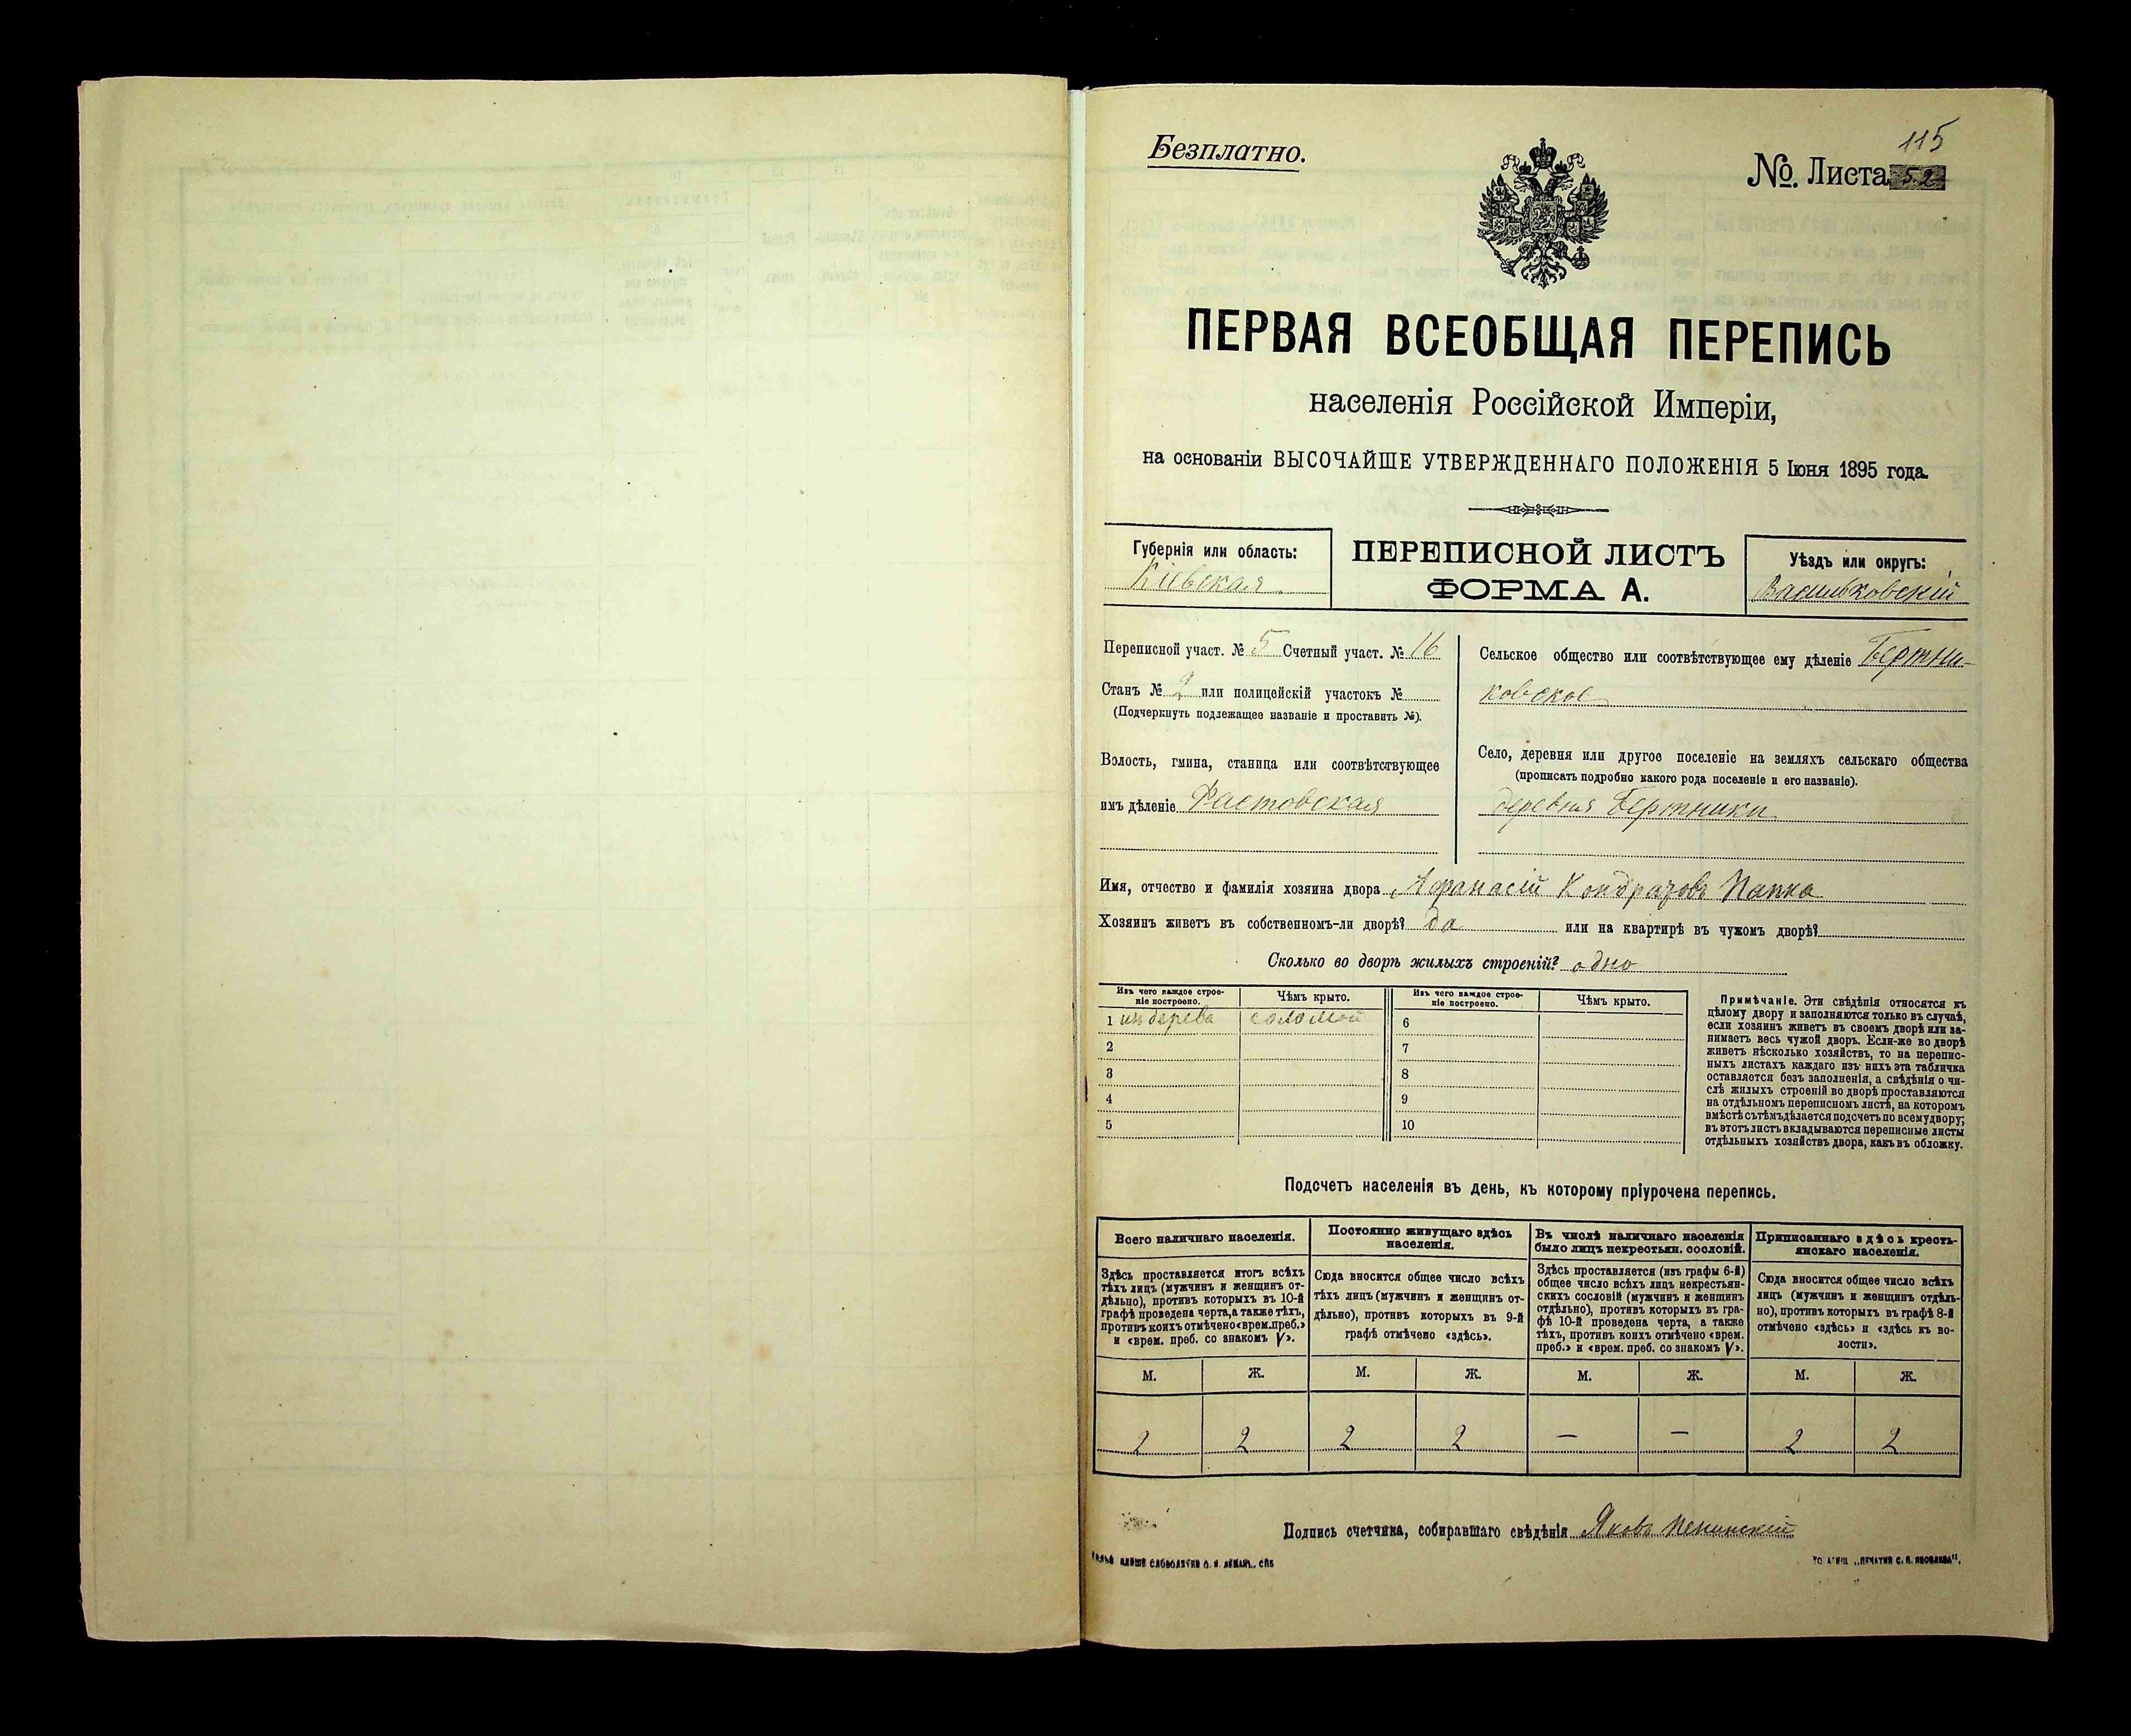 Безплатно.
115
№. Листа 52
ПЕРВАЯ ВСЕОБЩАЯ ПЕРЕПИСЬ
населенія Россійской Имперіи,
на основаніи ВЫСОЧАЙШЕ УТВЕРЖДЕННАГО ПОЛОЖЕНІЯ 5 Іюня 1895 года.
Губернія или область:
Кіевская
ПЕРЕПИСНОЙ ЛИСТЪ
ФОРМА А.
Уѣздъ или округъ:
Васильковскій
Переписной участ. № 5 Счетный участ. № 16
Станъ № 2 или полицейскій участокъ №
(Подчеркнуть подлежащее названіе и проставить №).
Волость, гмина, станица или соотвѣтствующее
имъ дѣленіе Фастовская
Сельское общество или соотвѣтствующее ему дѣленіе Бертни-
ковское
Село, деревня или другое поселеніе на земляхъ сельскаго общества
(прописать подробно какого рода поселеніе и его названіе).
деревня Бертники
Имя, отчество и фамилія хозяина двора Афанасій Кондратовъ Папка
Хозяинъ живетъ въ собственномъ-ли дворѣ? да или на квартирѣ въ чужомъ дворѣ?
Сколько во дворѣ жилыхъ строеній? одно
Изъ чего каждое строе-
ніе построено.
Чѣмъ крыто.
Изъ чего каждое строе-
ніе построено.
Чѣмъ крыто.
1 из дерева соломой 6
2 7
3 8
4 9
5 10
Примѣчаніе. Эти свѣдѣнія относятся къ
цѣлому двору и заполняются только въ случаѣ,
если хозяинъ живетъ въ своемъ дворѣ или за-
нимаетъ весь чужой дворъ. Если-же во дворѣ
живетъ нѣсколько хозяйствъ, то на перепис-
ныхъ листахъ каждаго изъ нихъ эта табличка
оставляется безъ заполненія, а свѣдѣнія о чи-
слѣ жилыхъ строеній во дворѣ проставляются
на отдѣльномъ переписномъ листѣ, на которомъ
вмѣстѣ съ тѣмъ дѣлается подсчетъ по всему двору;
въ этотъ листъ вкладываются переписные листы
отдѣльныхъ хозяйствъ двора, какъ въ обложку.
Подсчетъ населенія въ день, къ которому пріурочена перепись.
Всего наличнаго населенія.
Здѣсь проставляется итогъ всѣхъ
тѣхъ лицъ (мужчинъ и женщинъ от-
дѣльно), противъ которыхъ въ 10-й
графѣ проведена черта, а также тѣхъ,
противъ коихъ отмѣчено «врем. преб.»
и «врем. преб. со знакомъ V».
Постоянно живущаго здѣсь
населенія.
Сюда вносится общее число всѣхъ
тѣхъ лицъ (мужчинъ и женщинъ от-
дѣльно), противъ которыхъ въ 9-й
графѣ отмѣчено «здѣсь».
Въ числѣ наличнаго населенія
было лицъ некрестьян. сословій.
Здѣсь проставляется (изъ графы 6-й)
общее число всѣхъ лицъ некрестьян-
скихъ сословій (мужчинъ и женщинъ
отдѣльно), противъ которыхъ въ гра-
фѣ 10-й проведена черта, а также
тѣхъ, противъ коихъ отмѣчено «врем.
преб.» и «врем. преб. со знакомъ V».
Приписаннаго здѣсь кресть-
янскаго населенія.
Сюда вносится общее число всѣхъ
лицъ (мужчинъ и женщинъ отдѣль-
но), противъ которыхъ въ графѣ 8-й
отмѣчено «здѣсь» и «здѣсь къ во-
лости».
М. Ж. М. Ж. М. Ж. М. Ж.
2 2 2 2 — — 2 2
Подпись счетчика, собиравшаго свѣдѣнія Яковъ